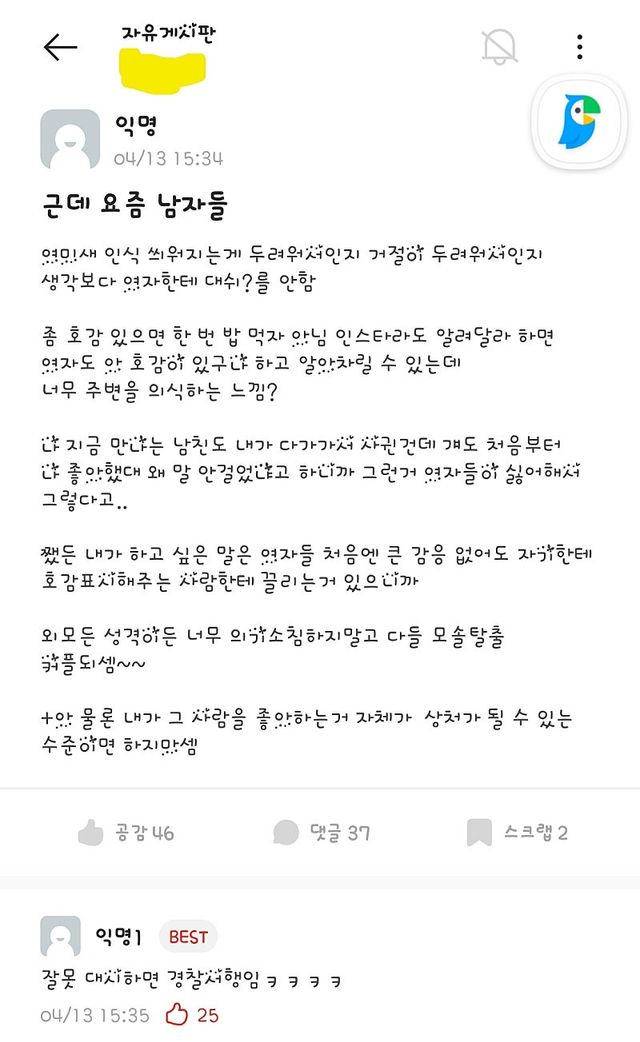 자유게시판
익명
04/13 15:34
근데 요즘 남자들
여미새 인식 씌워지는게 두려워서인지 거절이 두려워서인지
생각보다 여자한테 대쉬?를 안함
좀 호감 있으면 한 번 밥 먹자 아님 인스타라도 알려달라 하면
여자도 아 호감이 있구나 하고 알아차릴 수 있는데
너무 주변을 의식하는 느낌?
나 지금 만나는 남친도 내가 다가가서 사귄건데 걔도 처음부터
나 좋아했대 왜 말 안걸었냐고 하니까 그런거 여자들이 싫어해서
그렇다고..
쨌든 내가 하고 싶은 말은 여자들 처음엔 큰 감응 없어도 자기한테
호감표시해주는 사람한테 끌리는거 있으니까
외모든 성격이든 너무 의기소침하지말고 다들 모솔탈출
커플되셈~~
+아 물론 내가 그 사람을 좋아하는거 자체가 상처가 될 수 있는
수준이면 하지마셈
공감 46 댓글 37 스크랩 2
익명1 BEST
잘못 대시하면 경찰서행임ㅋㅋㅋㅋ
04/13 15:35 25